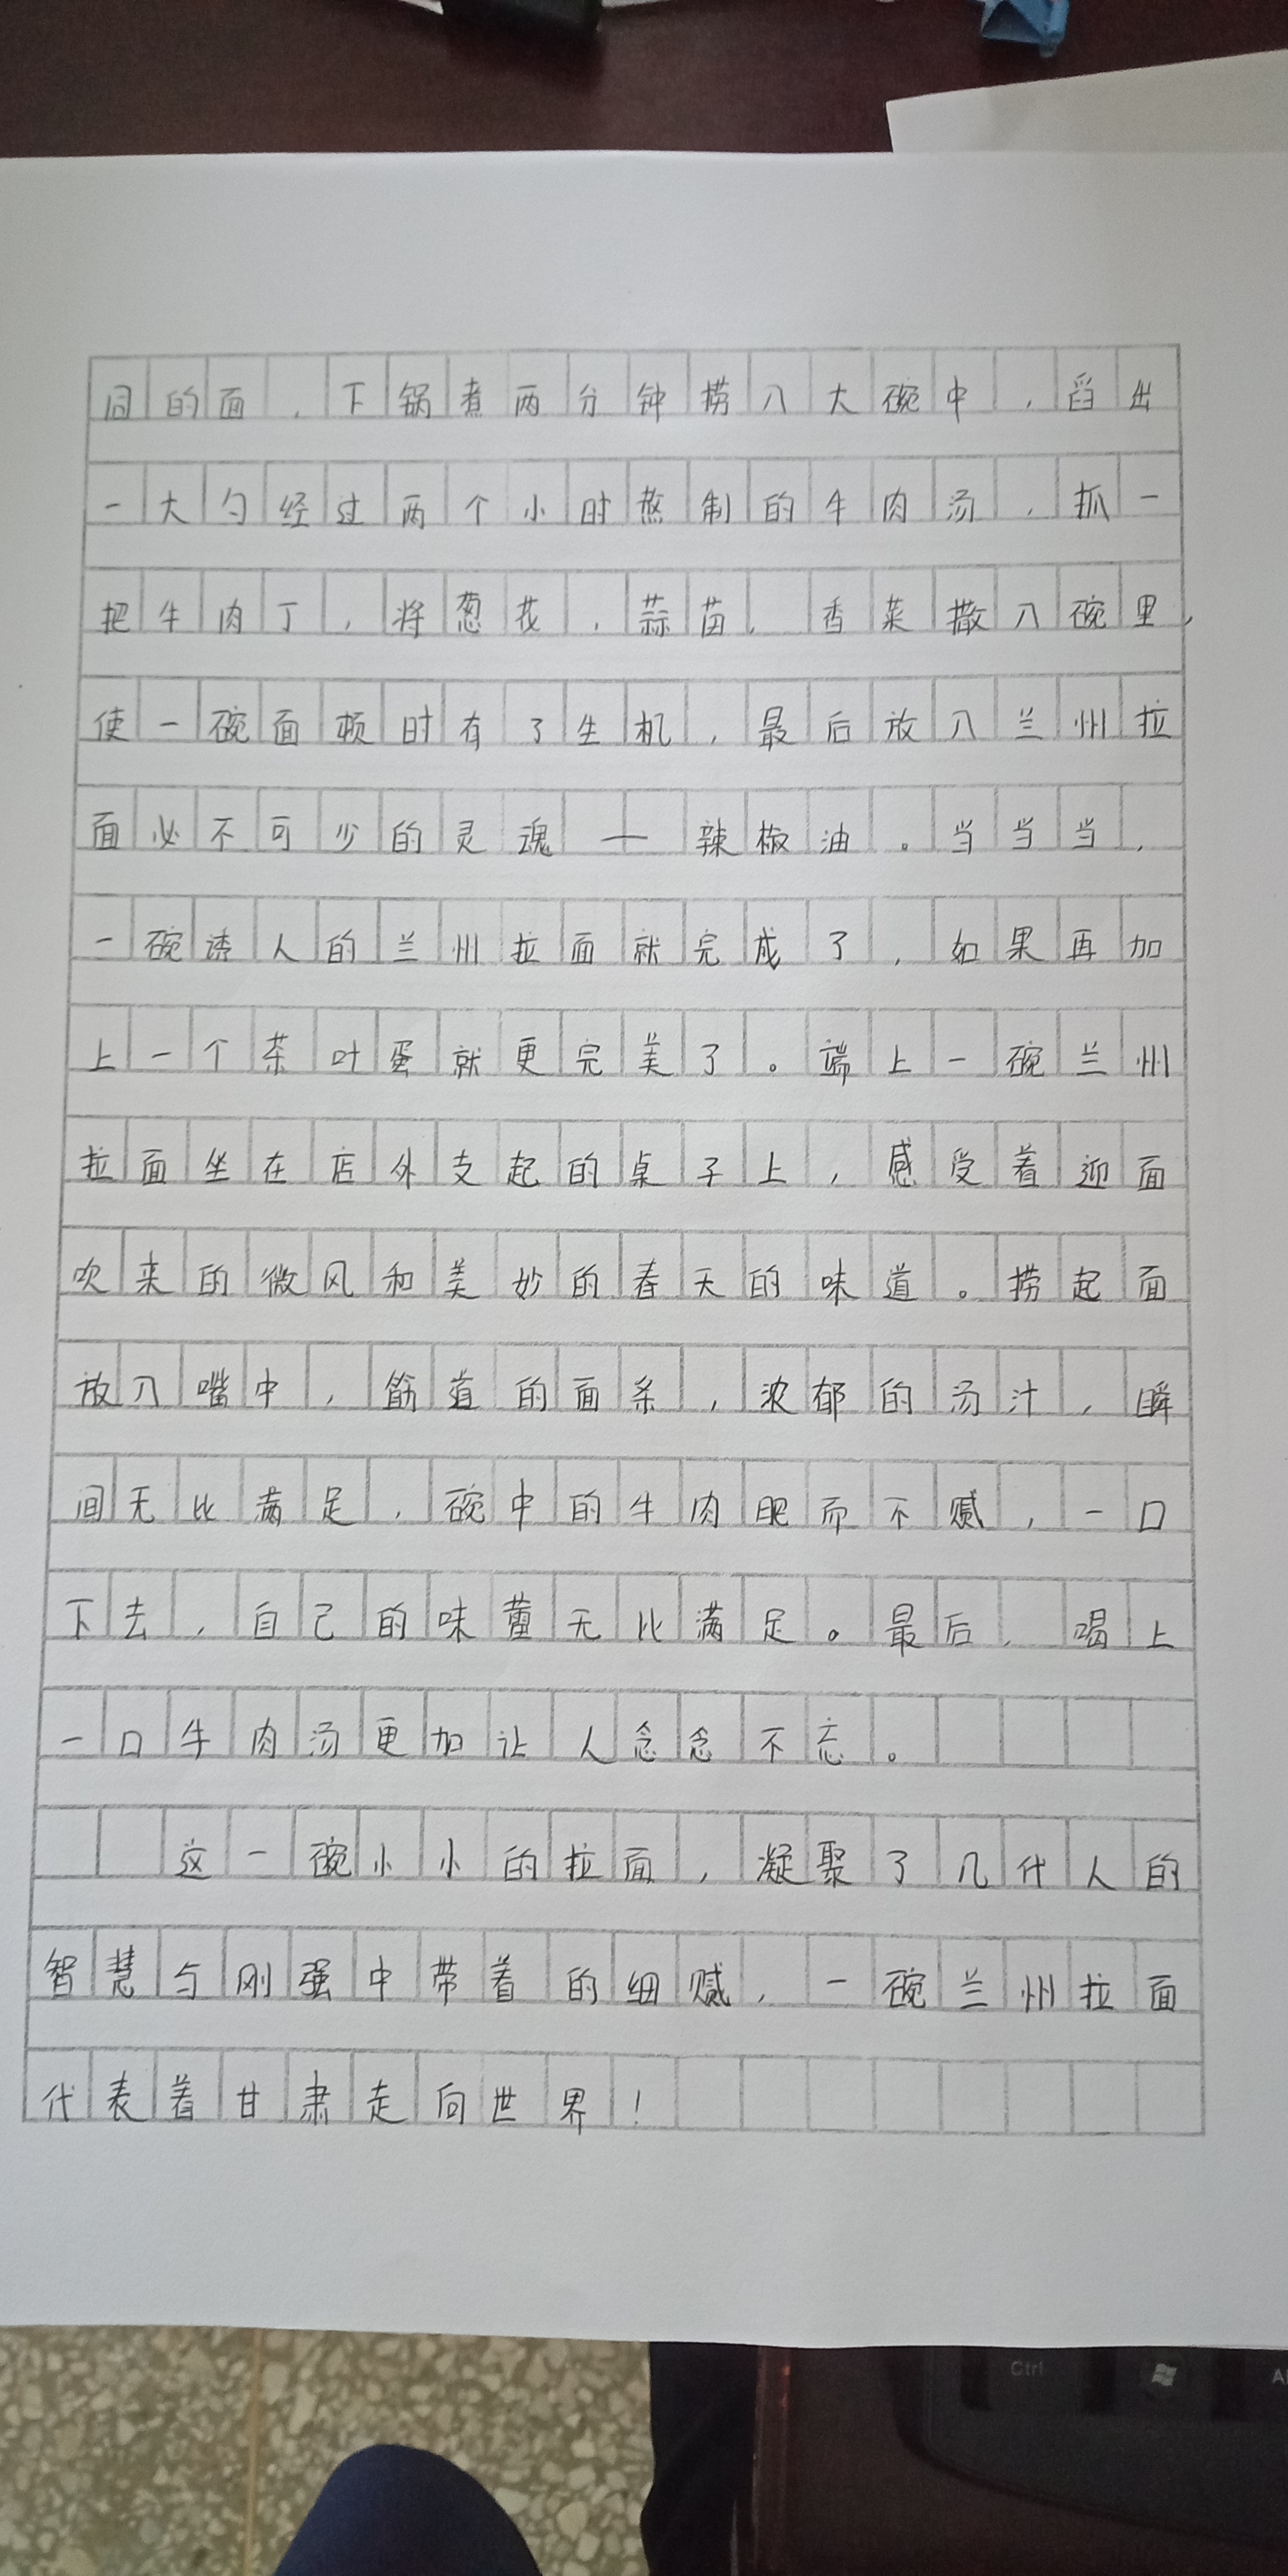 同的面，下锅煮两分钟捞入大碗中，舀出
一大勺经过两个小时熬制的牛肉汤，抓一
把牛肉丁，将葱花，蒜苗，香菜撒入碗里，
使一碗面顿时有了生机，最后放入兰州拉
面必不可少的灵魂—辣椒油。当当当，
一碗诱人的兰州拉面就完成了，如果再加
上一个茶叶蛋就更完美了。端上一碗兰州
拉面坐在店外支起的桌子上，感受着迎面
吹来的微风和美妙的春天的味道。捞起面
放入嘴中，筋道的面条，浓郁的汤汁，瞬
间无比满足，碗中的牛肉肥而不腻，一口
下去，自己的味蕾无比满足。最后，喝上
一口牛肉汤更加让人念念不忘。
这一碗小小的拉面，凝聚了几代人的
智慧与刚强中带着的细腻，一碗兰州拉面
代表着甘肃走向世界！
Ctrl